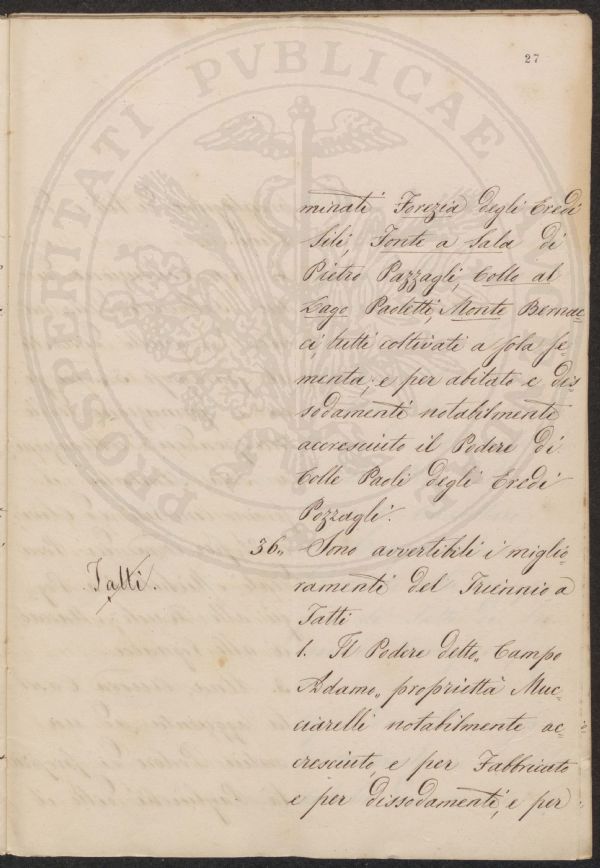 27
minati Forezia degli Eredi
Sili, Fonte a Sala di
Pietro Pazzagli, Collo al
Lago Paoletti, Monte Bernac=
ci, tutti coltivati a sola se=
menta; e per abitato e dis=
sodamenti notabilmente
accresciuto il Podere di
Colle Paoli degli Eredi
Pozzagli.
36„ Sono avvertibili i miglio=
Tatti.
ramenti del Triennio a
Tatti
1. Il Podere detto „ Campo
Adamo „ proprietta Muc=
ciarelli notabilmente ac=
cresciuto, e per Fabbricato
e per dissodamenti, e per
PROSPERITATI PVBLICAE